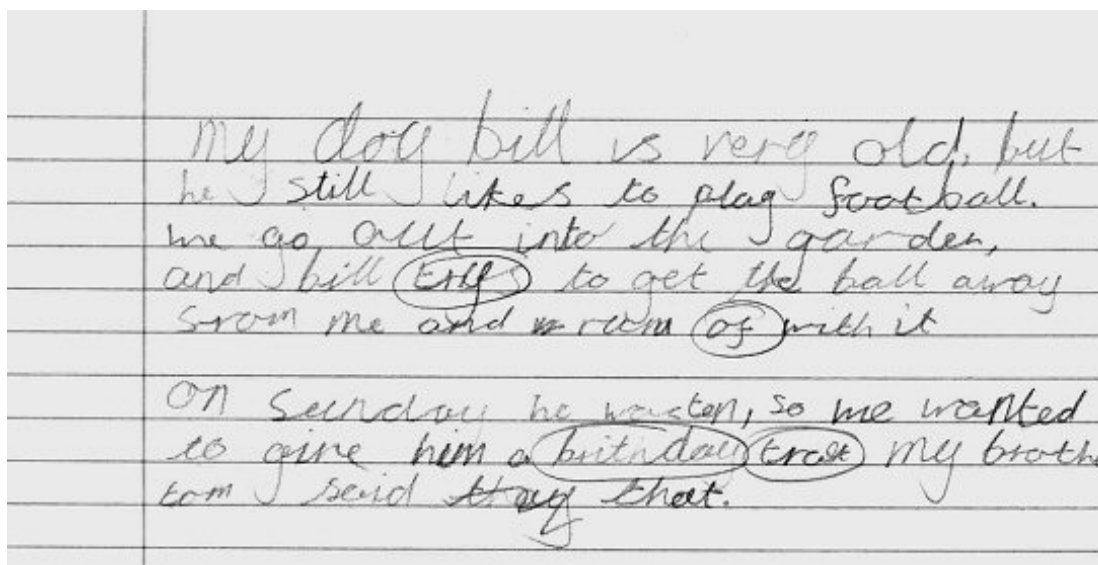 My dog bill is very old, but
he still likes to play football.
we go out into the garden,
and bill trys to get the ball away
from me and run of with it
On Sunday he was ten, so we wanted
to give him a brithday trat my brothe
tom said that.